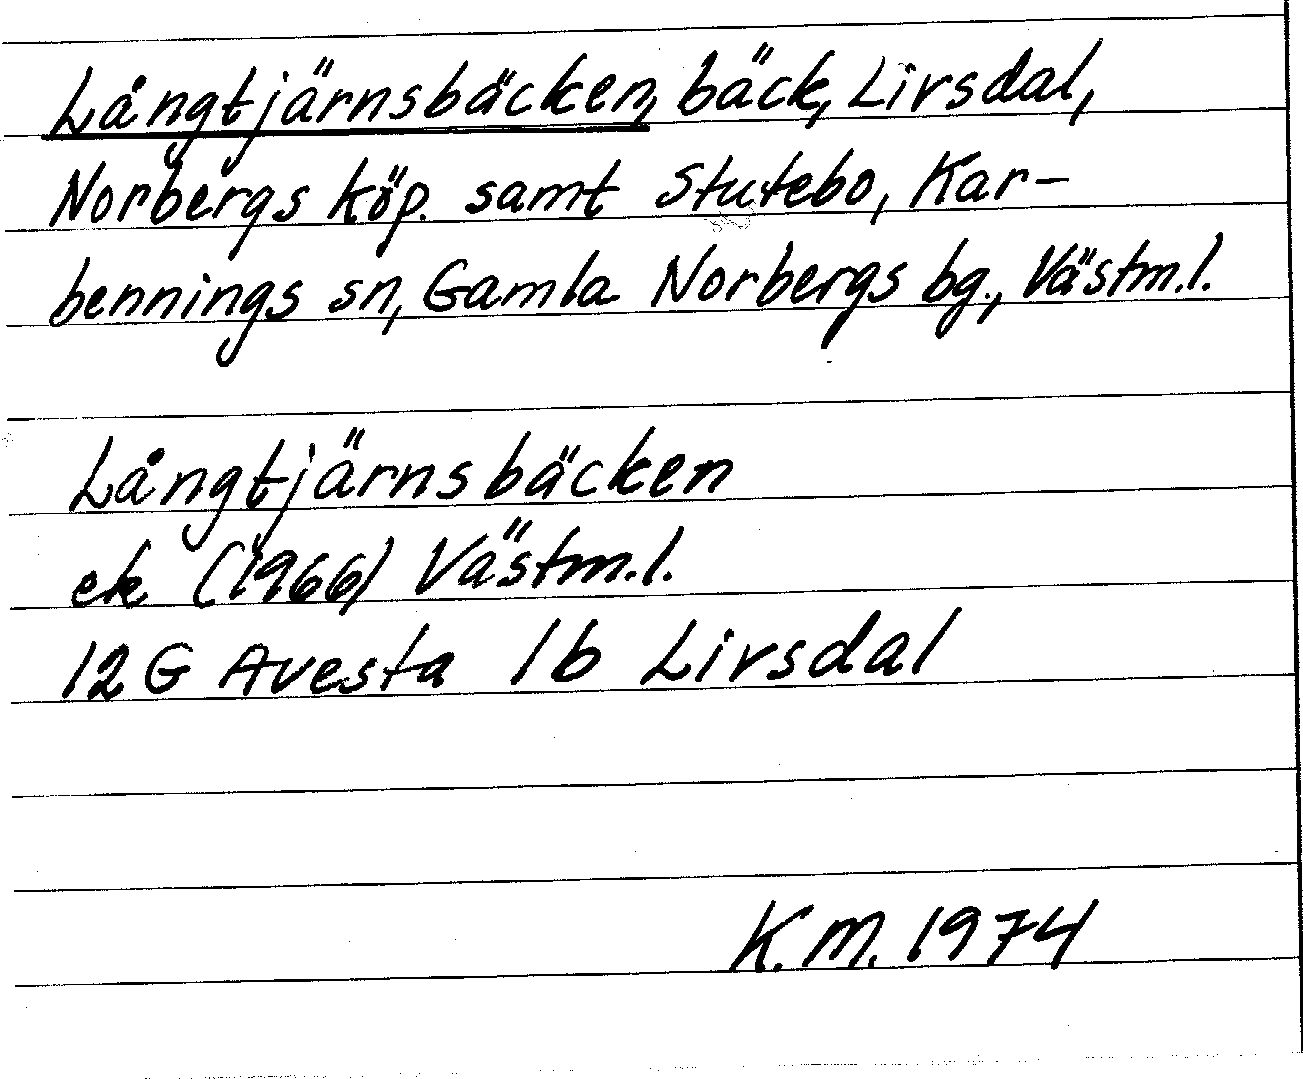 Långtjärnsbäcken, bäck, Livsdal,
Norbergs köp. samt Stutebo, Kar-
bennings sn, Gamla Norbergs bg., Västm.l.
Långtjärnsbäcken
ek (1966) Västm.l.
12G Avesta 1b Livsdal
K.M. 1974